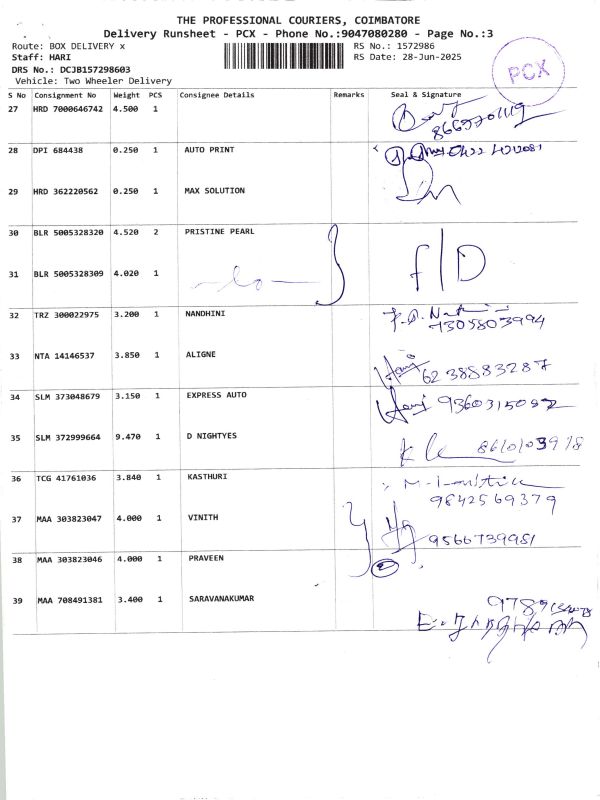 THE PROFESSIONAL COURIERS, COIMBATORE
Delivery Runsheet - PCX - Phone No.:9047080280 - Page No.:3
Route: BOX DELIVERY x
RS No.: 1572986
Staff: HARI
RS Date: 28-Jun-2025
DRS No.: DCJB157298603
Vehicle: Two Wheeler Delivery
PCX
S No Consignment No Weight PCS Consignee Details Remarks Seal & Signature
27 HRD 7000646742 4.500 1
28 DPI 684438 0.250 1 AUTO PRINT
29 HRD 362220562 0.250 1 MAX SOLUTION
30 BLR 5005328320 4.520 2 PRISTINE PEARL
31 BLR 5005328309 4.020 1
F/D
32 TRZ 300022975 3.200 1 NANDHINI
7305803994
33 NTA 14146537 3.850 1 ALIGNE
6238583287
34 SLM 373048679 3.150 1 EXPRESS AUTO
35 SLM 372999664 9.470 1 D NIGHTYES
36 TCG 41761036 3.840 1 KASTHURI
9842569379
37 MAA 303823047 4.000 1 VINITH
9566739951
38 MAA 303823046 4.000 1 PRAVEEN
2
39 MAA 708491381 3.400 1 SARAVANAKUMAR